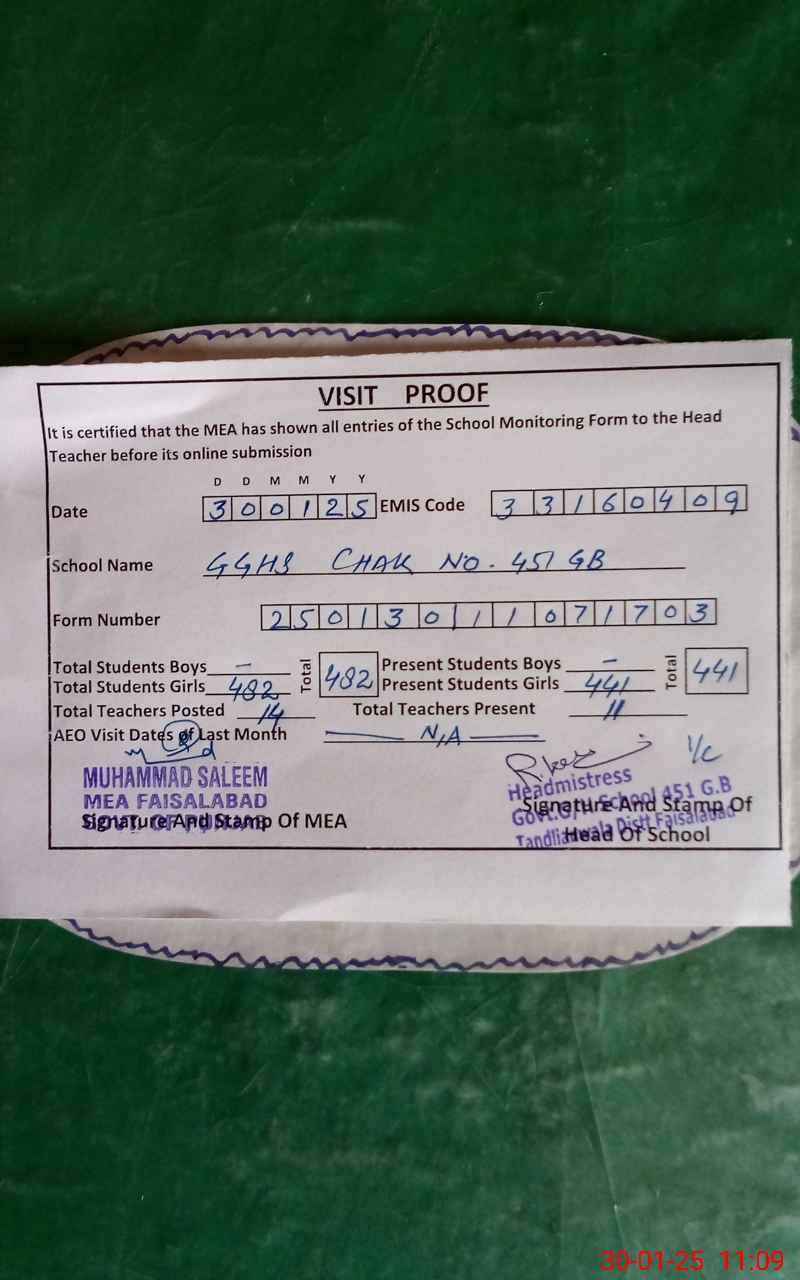 VISIT PROOF
It is certified that the MEA has shown all entries of the School Monitoring Form to the Head
Teacher before its online submission
D D M M Y Y
Date 300125 EMIS Code 33160409
School Name GGHS CHAK NO. 451 GB
Form Number 25013011071703
Total Students Boys – Total 482 Present Students Boys – Total 441
Total Students Girls 482 Present Students Girls 441
Total Teachers Posted 14 Total Teachers Present 11
AEO Visit Dates of Last Month N/A
I/C
MUHAMMAD SALEEM
MEA FAISALABAD
Signature And Stamp Of MEA
Headmistress
Govt. School 451 G.B
Signature And Stamp Of
Tandlianwala Distt Faisalabad
Head Of School
30-01-25 11:09